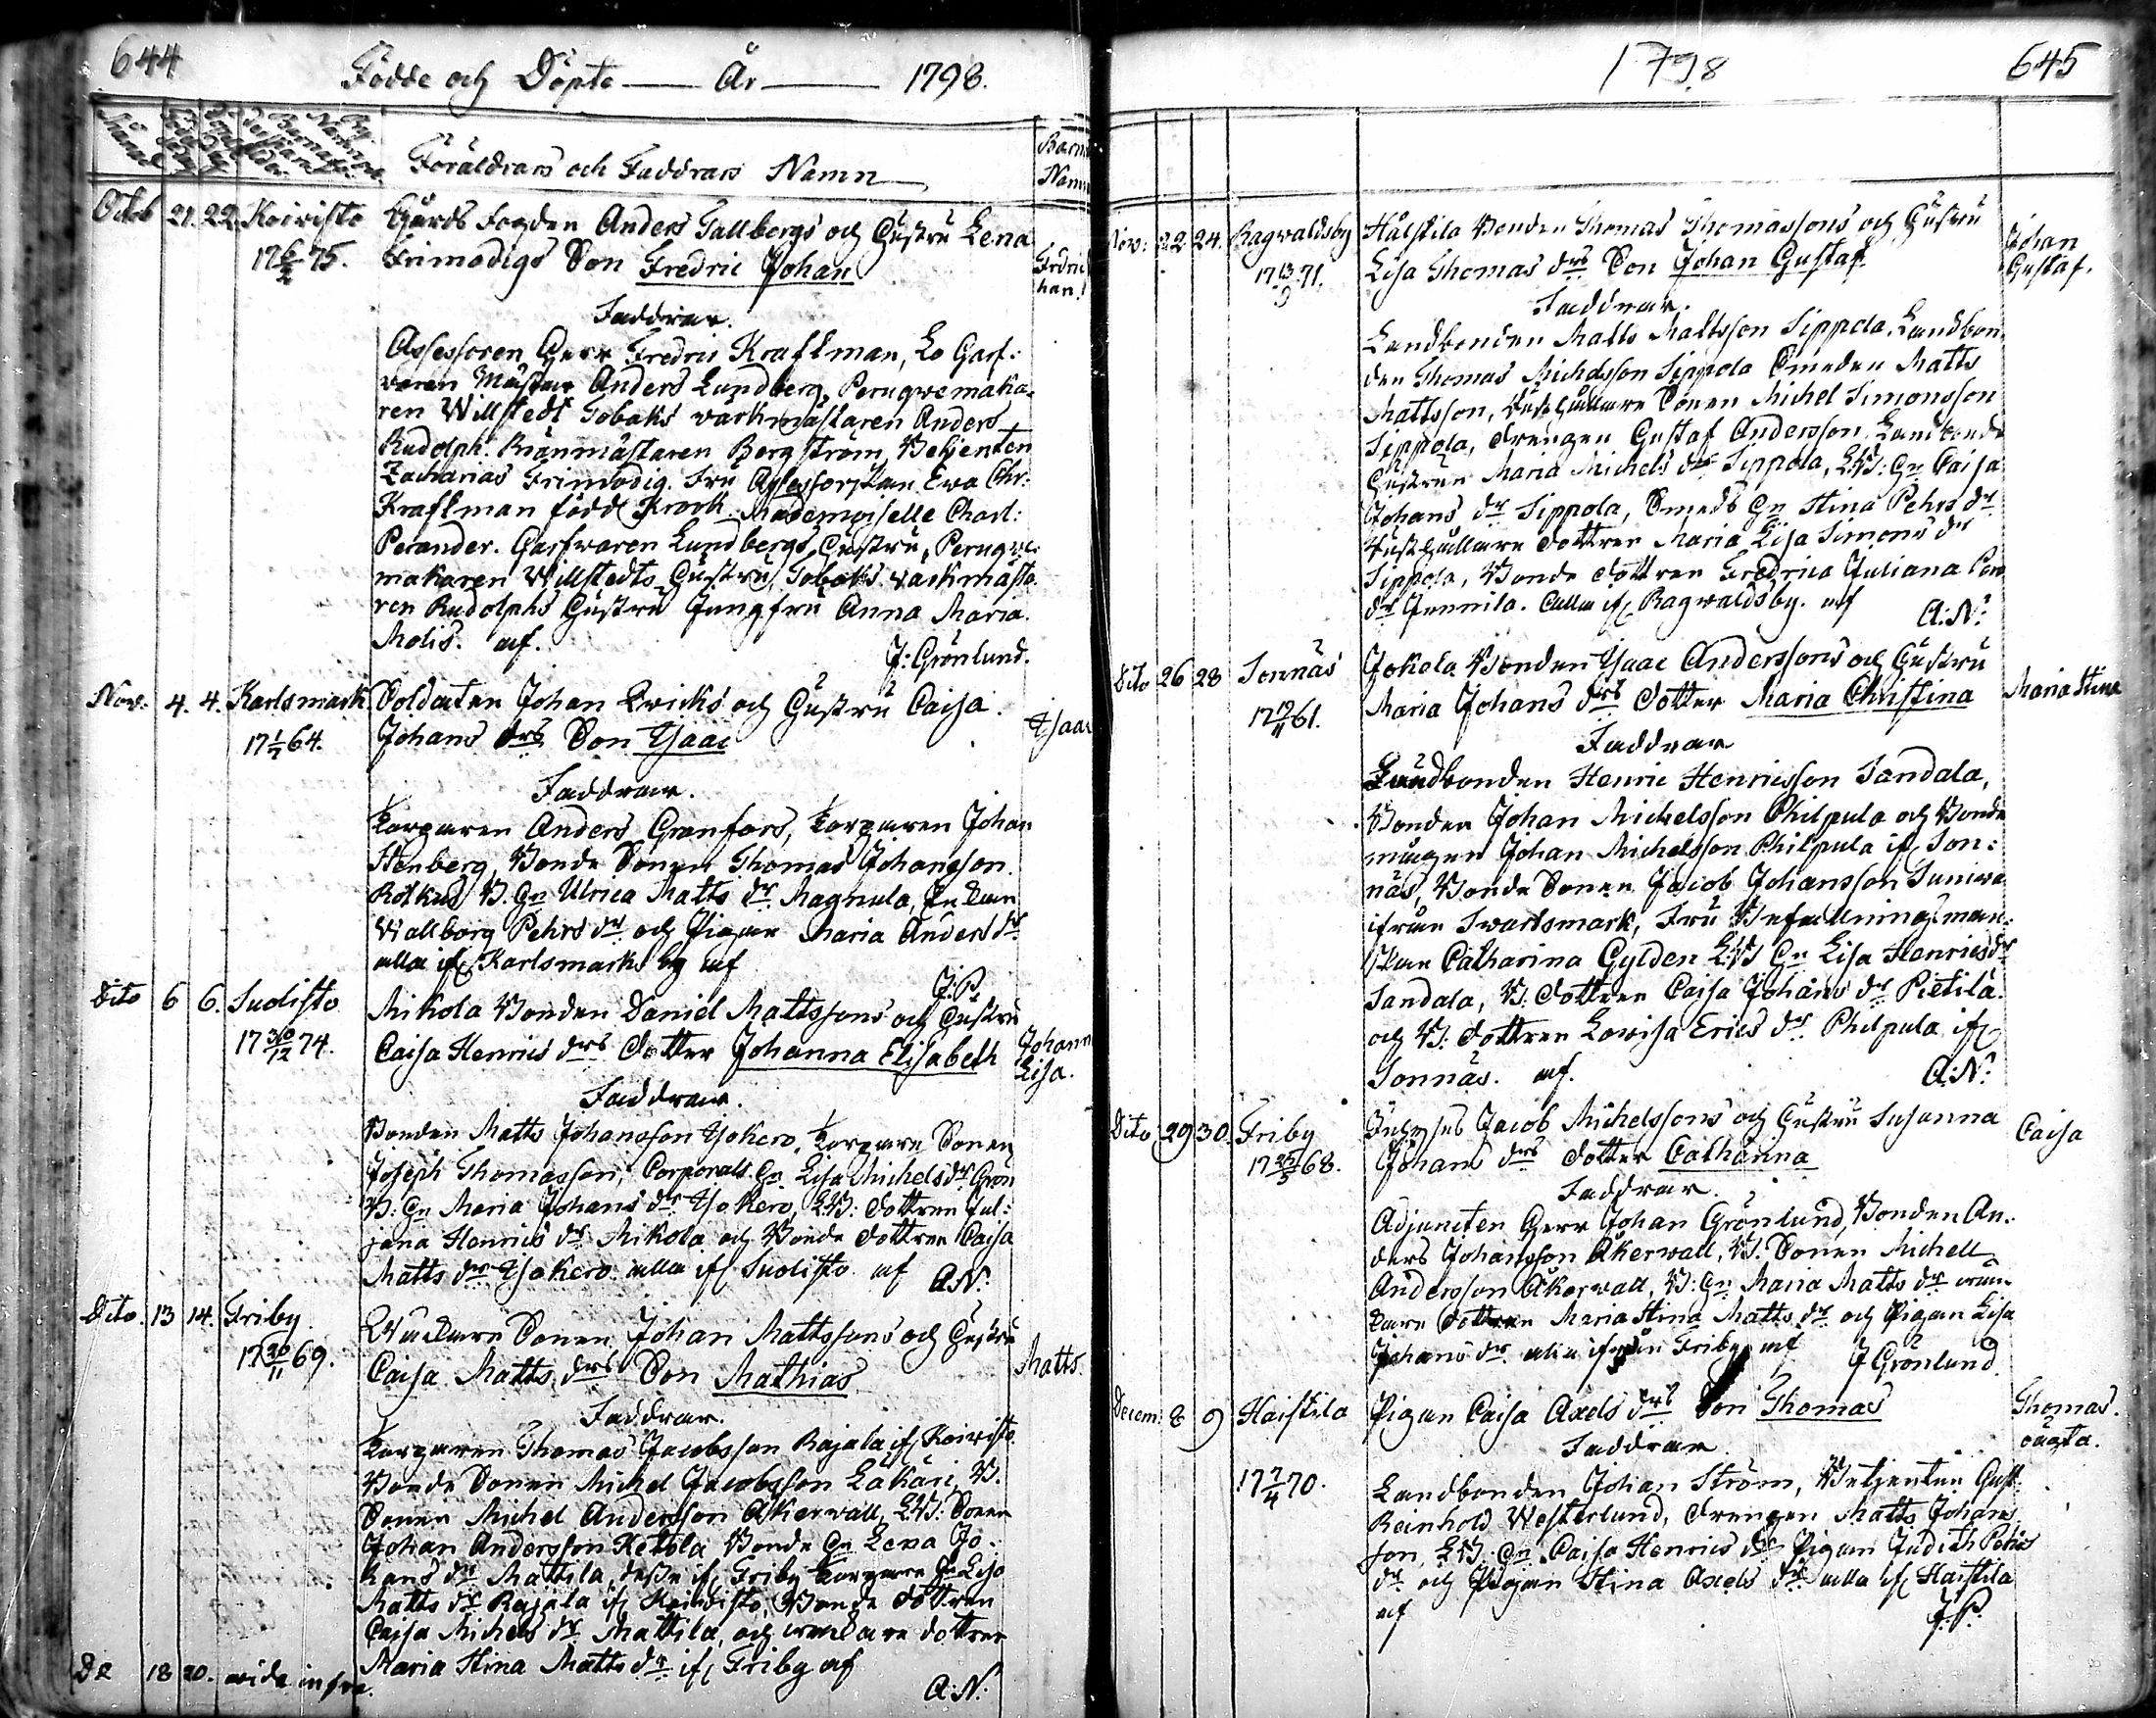 644
Födde och Döpte — År — 1798.
Föräldrars och Faddrars Namn
Barns
Namn
Octob 21. 22. Koivisto Gårds Fogden Anders Tallbergs och Hustru Lena
17 6/2 75. Frimodigs Son Fredric Johan
Fredric
han.
Faddrar.
Assessoren Herr Fredric Kraftman, Lo Garf-
waren Mäster Anders Lundberg, Peruqvemaka-
ren Willstedt Tobaks warkmästaren Anders
Rudolph. Bergström, Betjenten
Zacharias Frimodig. Fru Assessorskan Ewa Chr:
Kraftman född Krook. Mademoiselle Charl:
Perander. Garfwaren Lundbergs Hustru, Peruqve-
makaren Willstedts Hustru, Tobaks warkmästa-
ren Rudolphs Hustru Jungfru Anna Maria
Molis. af.
J: Grönlund.
Nov. 4. 4. Karlsmark Soldaten Johan Qvicks och Hustru Caisa
17 1/7 64. Johans drs Son Isaac
Isaac
Faddrar.
Torparen Anders Granfors, Torparen Johan
Stenberg, Bonde Sonen Thomas Johansson
Rotkus B. Hn Ulrica Matts dr Magnula, Enkan
Wallborg Pehrs dr och Pigan Maria Anders dr
alla if Karlsmark by af
J:P.
Dito 6 6. Suolisto Mikola Bonden Daniel Mattssons och Hustru
17 30/12 74. Caisa Henrics drs Dotter Johanna Elisabeth
Johann
Lisa.
Faddrar.
Bonden Matts Johansson Yokero, Torpare Sonen
Joseph Thomasson, Corporals Hn Lisa Michels dr Grön
B: Hn Maria Johans dr Yokero, LB: Dottren Jul-
jana Henrics dr Mikola och Bonde dottren Caisa
Matts dr Yokero alla if Suolisto af A:N:
Dito. 13 14. Friby Sonen Johan Mattssons och Hustru
17 20/11 69. Caisa Matts drs Son Mathias
Matts.
Faddrar.
Torparen Thomas Jacobsson Rajala if Koivisto
Bonde Sonen Michel Jacobsson Läkäri, B.
Sonen Michel Andersson Åkerwall, LB: Sonen
Johan Andersson Ketola Bonde Hn Lena Jo-
hans dr Mattila, desse if Friby Torpare Hn Lisa
Matts dr Rajala if Koivisto, Bonde dottren
Caisa Michels dr Mattila, och dottren
Maria Stina Matts dr if Friby af
A:N:
Do 18 20. vide infra.
1798 645
Nov: 22 24. Ragwaldsby Hålstila Bonden Thomas Thomassons och Hustru
17 13/9 71. Lisa Thomas drs Son Johan Gustaf
Johan
Gustaf.
Faddrar.
Landbonden Matts Mattsson Sippola, Landbon-
den Thomas Michelsson Sippola Smeden Matts
Mattsson, Sonen Michel Simonsson
Sippola, Drengen Gustaf Andersson, Landbonde
Hustrun Maria Michels dr Sippola, LB: Hn Caisa
Johans dr Sippola, Smeds Hn Stina Pehrs dr
dottren Maria Lisa Simons dr
Sippola, Bonde dottren Fredrica Juliana
dr Junnila. Alla if Ragwaldsby. af A:N:
Dito 26 28 Sonnäs Jokela Bonden Isaac Anderssons och Hustru
17 19/11 61. Maria Johans drs Dotter Maria Christina
Maria Stina
Faddrar
Landbonden Henric Henricsson Sandala,
Bonden Johan Michelsson Philpula och Bonde
mågen Johan Michelsson Philpula if Son-
näs, Bonde Sonen Jacob Johansson Suniwa
ifrån Swartsmark, Fru Befallningsman-
skan Catharina Gylden LB Hn Lisa Henrics dr
Sandala, B. dottren Caisa Johans dr Pietila
och B: dottren Lowisa Erics dr Philpula if
Sonnäs. af. A:N:
Dito 29 30. Friby Inhyses Jacob Michelssons och Hustru Susanna
17 25/3 68. Johans drs Dotter Catharina
Caisa
Faddrar.
Adjuncten Herr Johan Grönlund, Bonden An-
ders Johansson Åkerwall, B. Sonen Michell
Andersson Åkerwall, B: Hn Maria Matts dr
dottren Maria Stina Matts dr och Pigan Lisa
Johans dr alla ifrån Friby af J Grönlund
Decem: 8 9 Haistila Pigan Caisa Axels drs Son Thomas
Thomas.
oägta.
Faddrar
17 7/4 70. Landbonden Johan Ström, Betjenten Gust:
Reinhold Westerlund, Drengen Matts Johans-
son, LB: Hn Caisa Henrics dr Pigan Judith Pehrs
dr och Pigan Stina Axels dr alla if Haistila
af J.P.